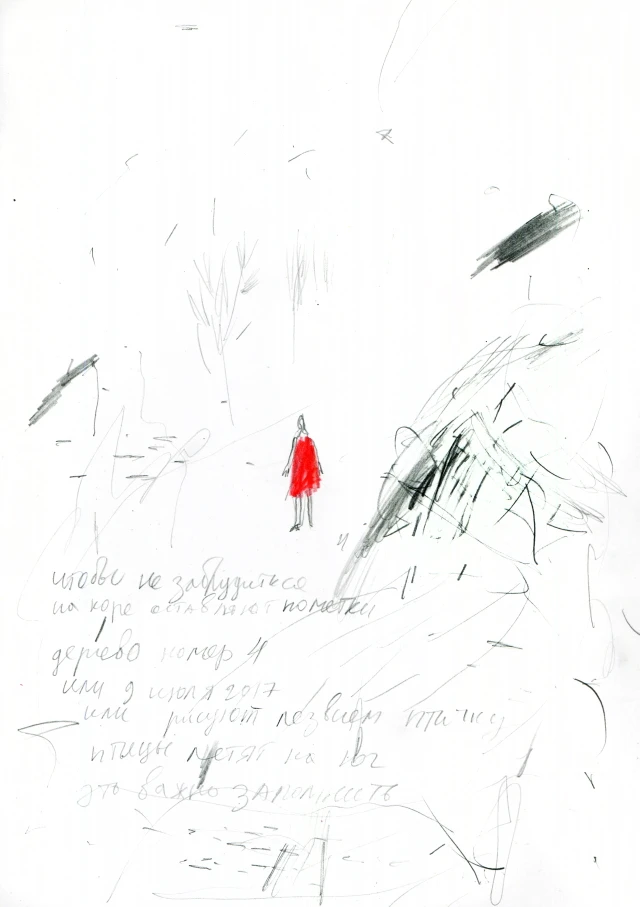 чтобы не заблудиться
на коре оставляют пометки
дерево номер 4
или 9 июля 2017
или рисуют лезвием птичку
птицы летят на юг
это важно запомнить